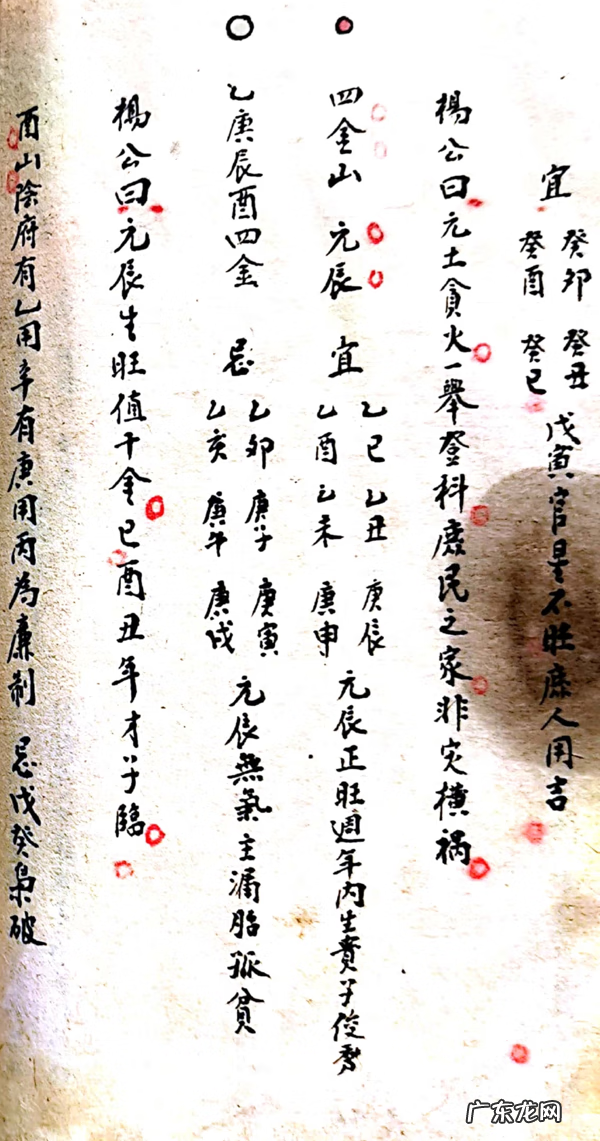 宜 癸卯 癸丑 癸酉 癸巳 戊寅官星不旺庶人用吉
楊公曰元土貪火一舉登科庶民之家非灾横祸
四金山 元辰 宜 乙巳 乙丑 庚辰 乙酉 乙未 庚申 元辰正旺週年內生貴子俊秀
乙庚辰酉四金 忌 乙卯 庚子 庚寅 乙亥 庚午 庚戌 元辰無氣主漏胎孤貧
楊公曰元辰生旺值千金巳酉丑年才子臨
酉山陰府有乙用辛有庚用丙為廉制 忌戊癸梟破
广东龙网